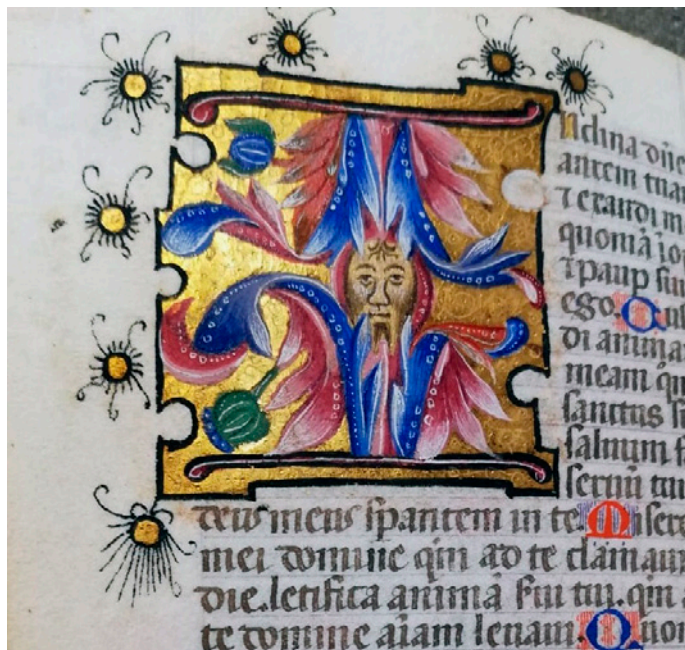 I
nclina dñe
aurem tua
⁊ exaudi m
quoniã ino
⁊ paup su
ego. Cus
di anima
meam qu
sanctus su
saluum f
seruũ tuu
deus meus spantem in te Misere
mei domine qm̃ ad te clamaui
die. letifica animã sui tui. qm̃ a
te domine aiam leuaui. Quon